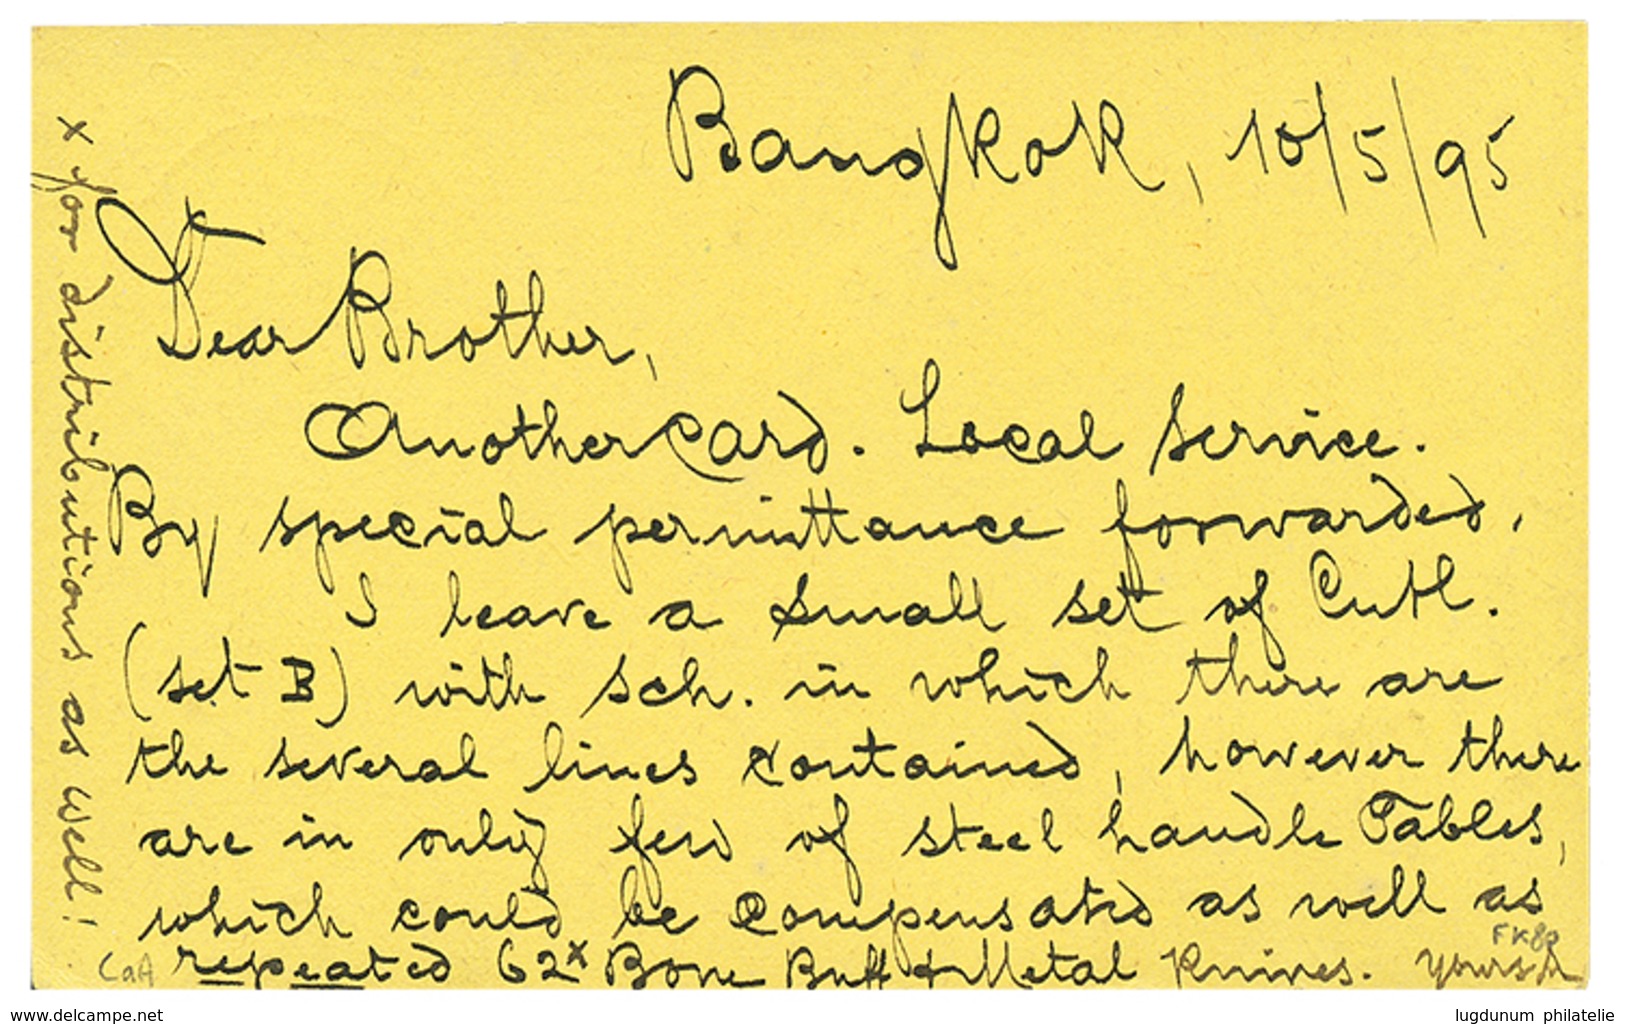 Bangkok, 10/5/95
Dear Brother,
Another Card. Local Service.
By special permittance forwarded.
I leave a small set of Cutl.
(set B) with Sch. in which there are
the several lines contained, however there
are in only few of steel handle Tables,
which could be compensated as well as
repeated 62x Bone Buff & Metal Knives. Yours
x for distributions as well!
www.delcampe.net
lugdunum philatelie